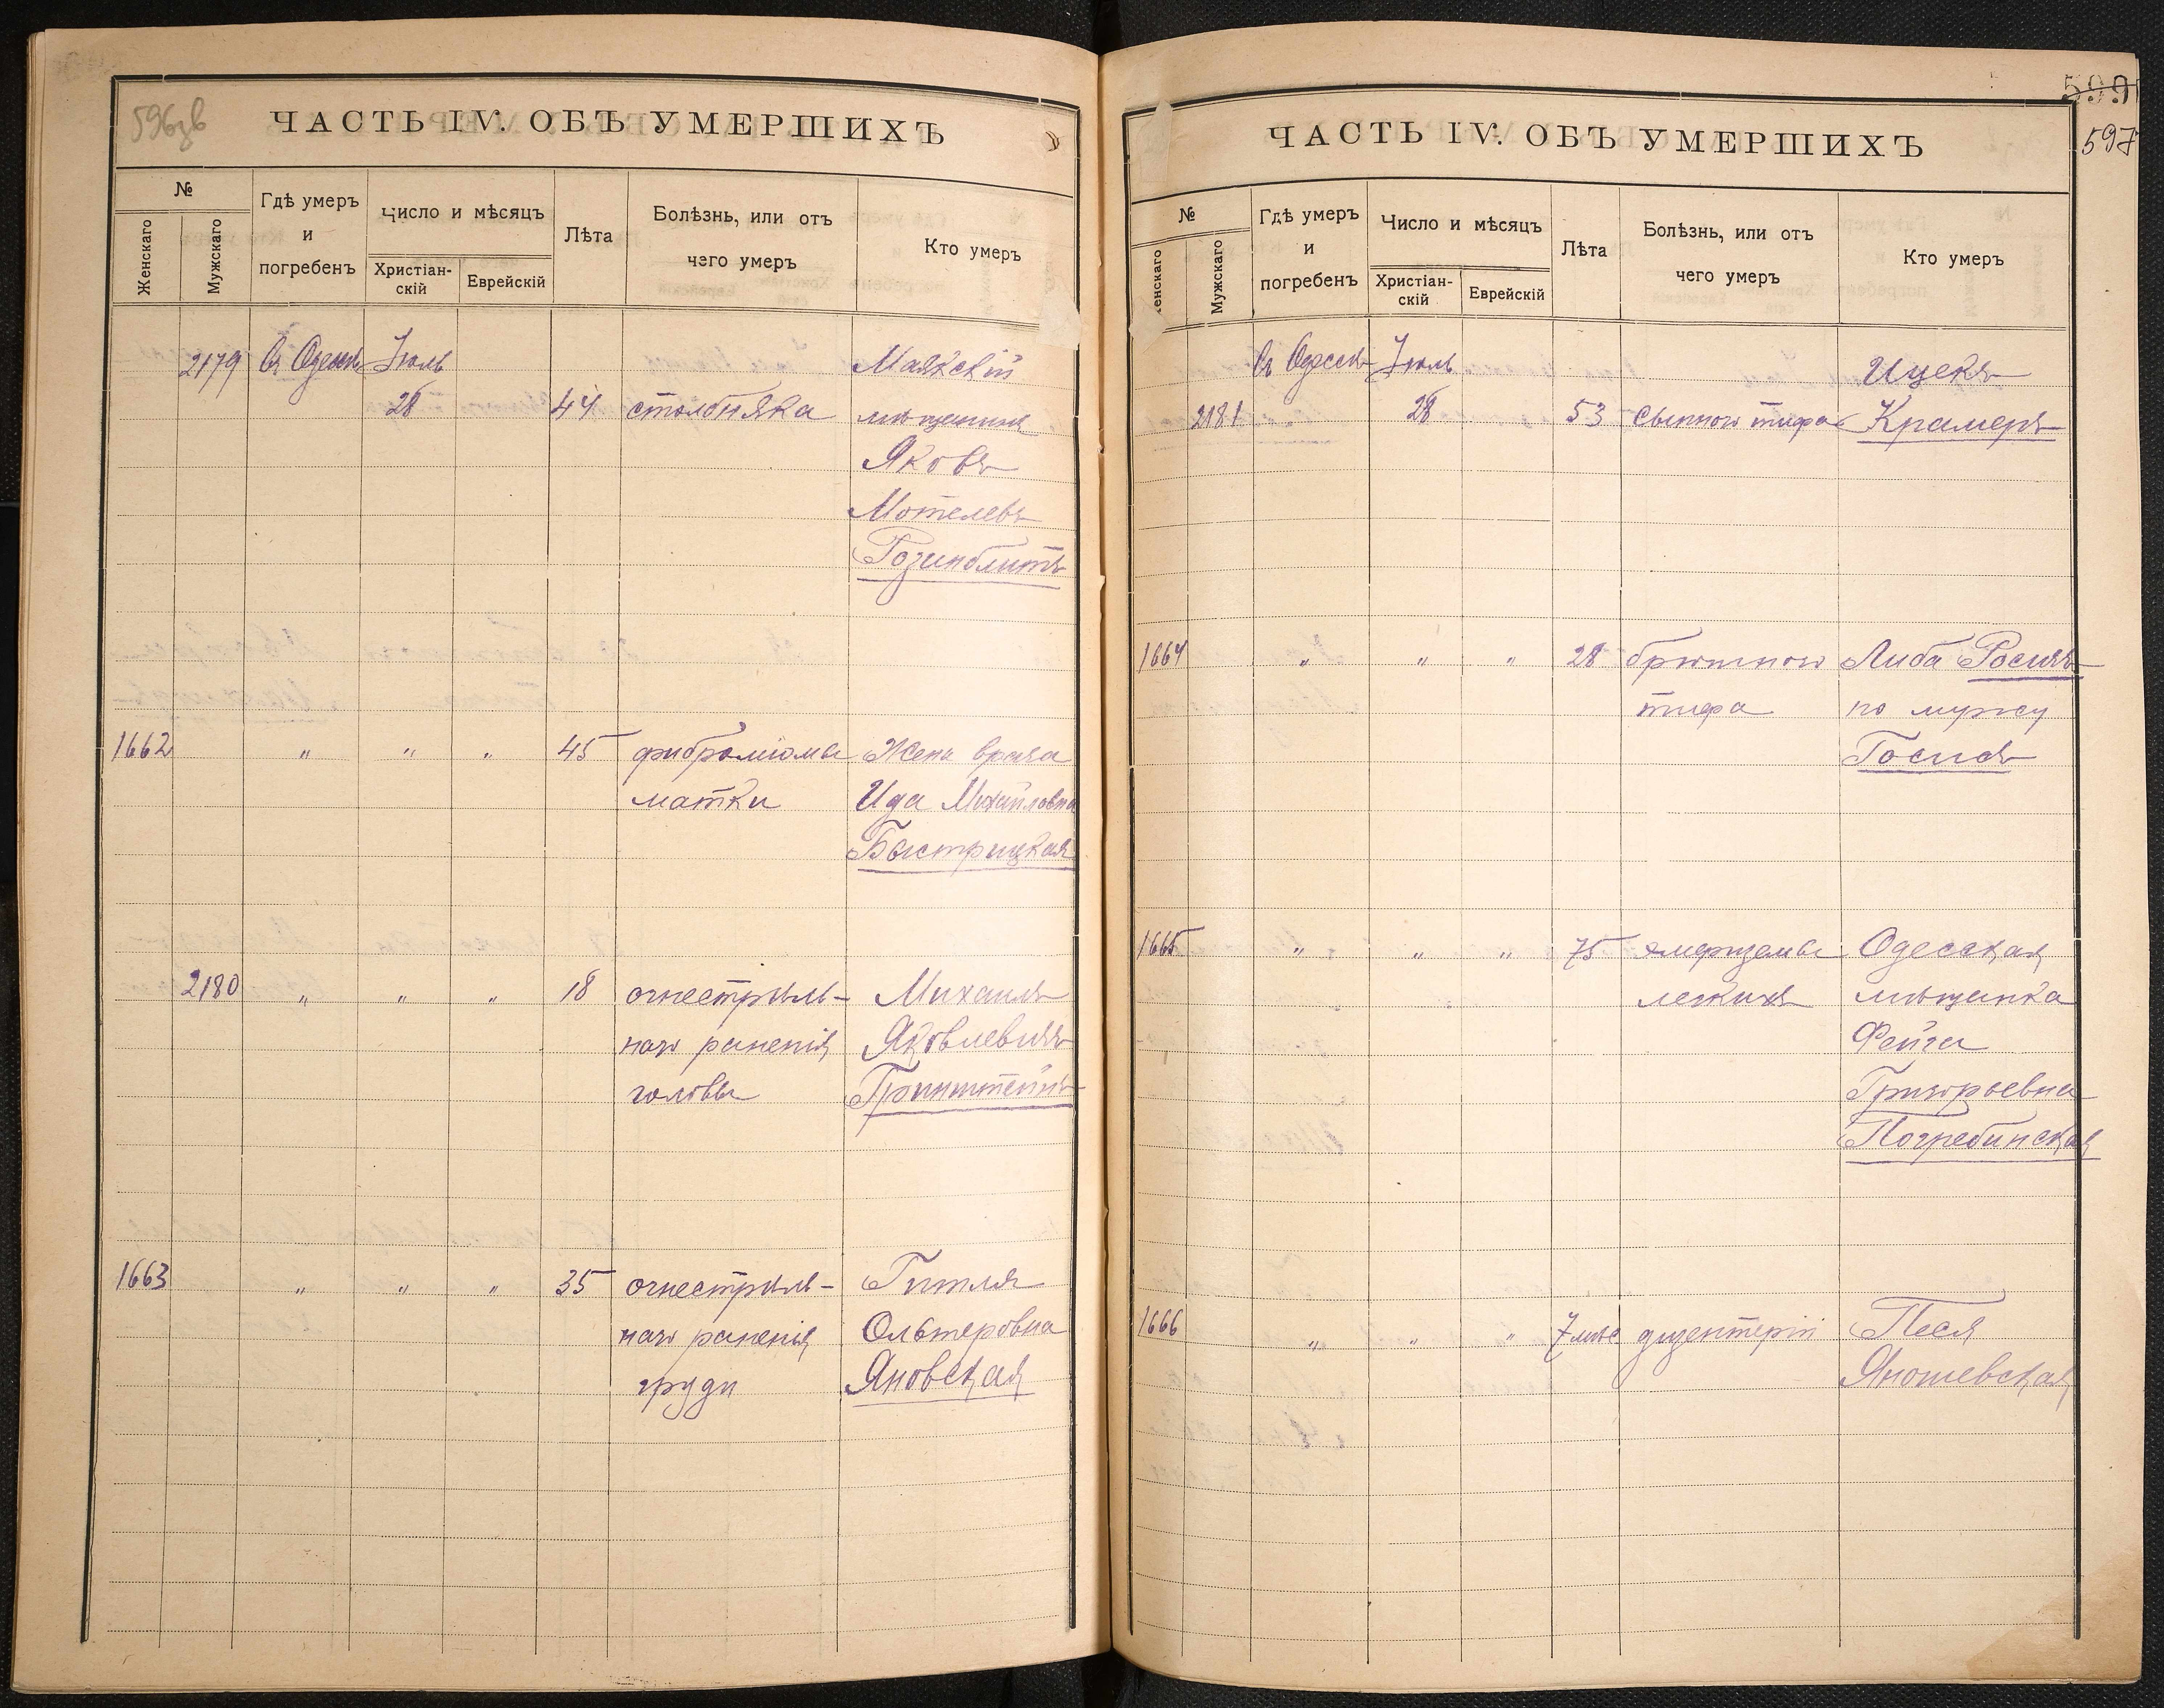 596зв
ЧАСТЬ IV. ОБЪ УМЕРШИХЪ
№
Женскаго
Мужскаго
Гдѣ умеръ
и
погребенъ
Число и мѣсяцъ
Христіан-
скій
Еврейскій
Лѣта
Болѣзнь, или отъ
чего умеръ
Кто умеръ
2179 Въ Одессѣ Іюль Маякскій
28 44 столбняка мѣщанинъ
Яковъ
Мотелевъ
Розинблитъ
1662 " " " 45 фиброміомы Жена врача
матки Ида Михайловна
Быстрицкая
2180 " " " 18 огнестрѣль- Михаилъ
наго раненія Яковлевичъ
головы Гринштейнъ
1663 " " " 35 огнестрѣль- Гитля
наго раненія Ольтеровна
груди Яновская
599
597
ЧАСТЬ IV. ОБЪ УМЕРШИХЪ
№
Женскаго
Мужскаго
Гдѣ умеръ
и
погребенъ
Число и мѣсяцъ
Христіан-
скій
Еврейскій
Лѣта
Болѣзнь, или отъ
чего умеръ
Кто умеръ
Въ Одессѣ Іюль Ицекъ
2181 28 53 сыпного тифа Крамеръ
1664 " " " 28 брюшного Либа
тифа по мужу
1665 " " " 75 эмфиземы Одесская
легкихъ мѣщанка
Фейга
Григорьевна
Погребинская
1666 " " " 7 мѣс дизентеріи Песя
Яношевская